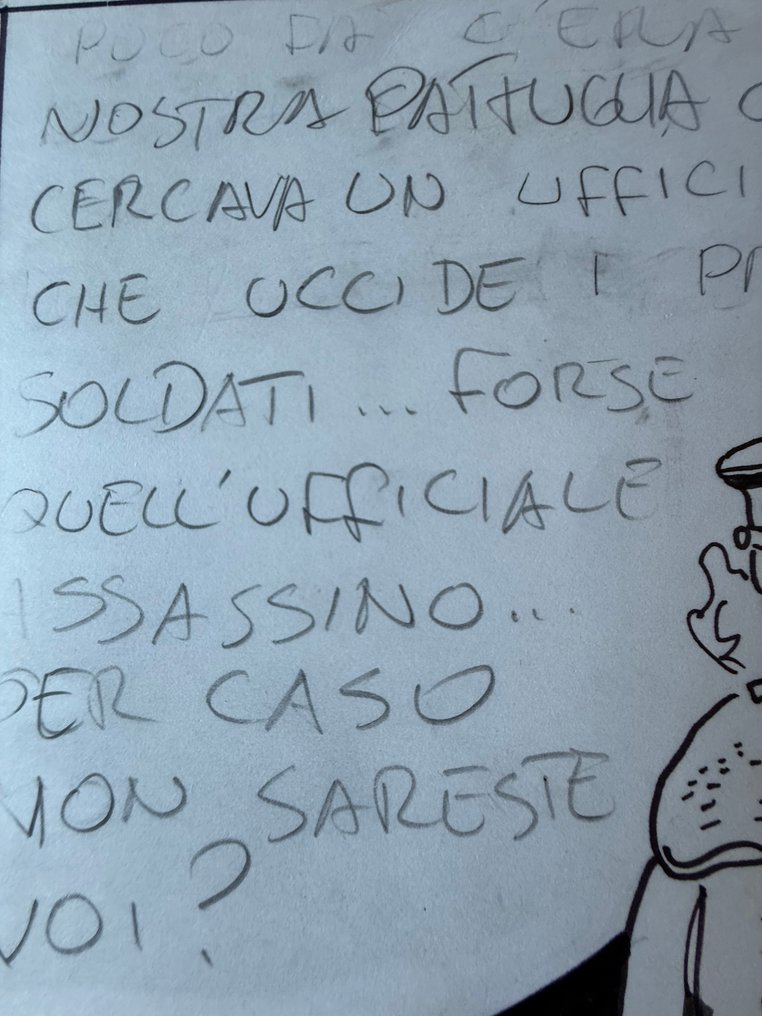 POCO FA C'ERA
NOSTRA PATTUGLIA
CERCAVA UN UFFICI
CHE UCCIDE I
SOLDATI... FORSE
QUELL'UFFICIALE
ASSASSINO...
PER CASO
NON SARESTE
VOI?